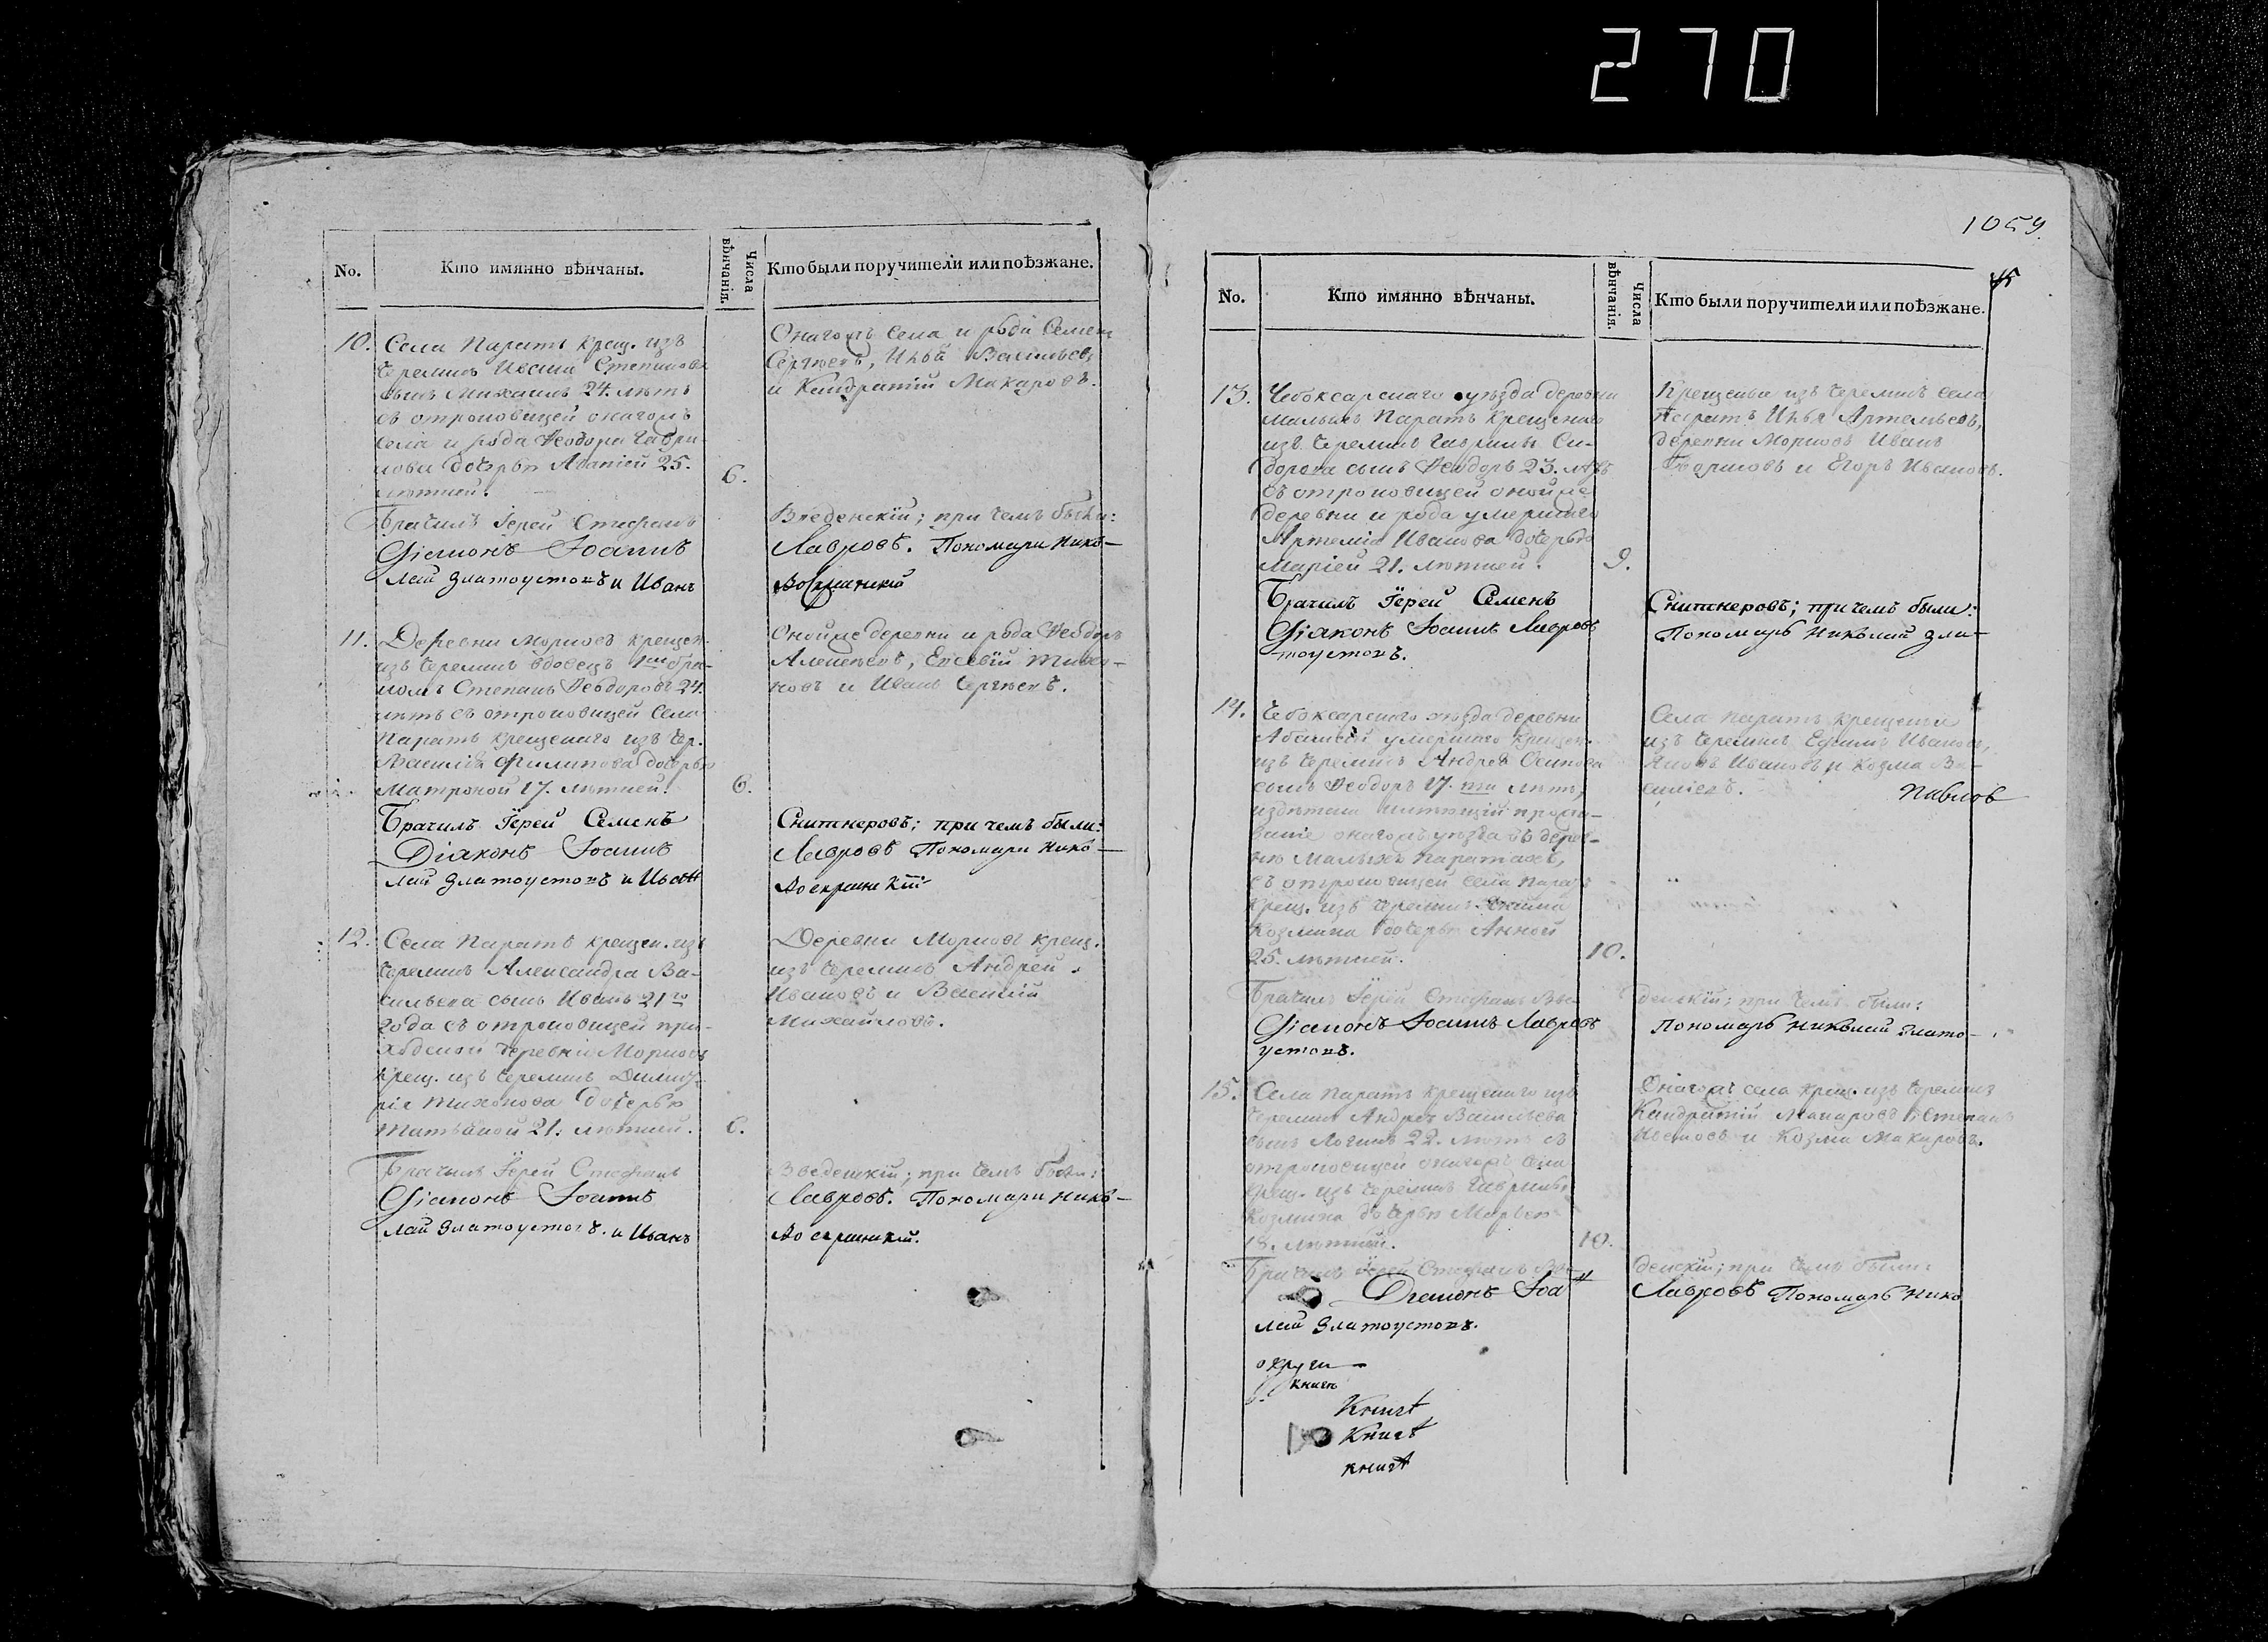 270
No.
Кто имянно вѣнчаны.
Числа вѣнчанія.
Кто были поручители или поѣзжане.
10.
Села Паратъ крещ. изъ
Черемисъ Ивана Степанова
сынъ Михаилъ 24. лѣтъ
съ отроковицей онагожъ
села и рода Ѳеодора Гаври-
лова дочерью 25.
лѣтней.
6.
Онагожъ села и рода Семенъ
Сергѣевъ, Илья Васильевъ
и Кондратій Макаровъ.
Брачилъ Іерей Стефанъ
Введенскій; при чемъ были:
Діаконъ Іоаннъ
Лавровъ. Пономари Нико-
лай Златоустовъ и Иванъ
11.
Деревни крещен.
изъ Черемисъ вдовецъ бра-
комъ Степанъ Ѳеодоровъ 24.
лѣтъ съ отроковицей села
Паратъ крещенаго изъ Чер.
Василія Филипова дочерью
Матроной 17. лѣтней.
6.
Онойже деревни и рода Ѳеодоръ
Алексѣевъ, Евсевій Тихо-
новъ и Иванъ Сергѣевъ.
Брачилъ Іерей Семенъ
Снитнеровъ; при чемъ были:
Діаконъ Іоаннъ
Лавровъ Пономари Нико-
лай Златоустовъ и Иванъ
12.
Села Паратъ крещен. изъ
Черемисъ Александра Ва-
сильева сынъ Иванъ 21го
года съ отроковицей при-
ходской деревни
крещ. изъ Черемисъ Димит-
рія Тихонова дочерью
Татьяной 21. лѣтней.
6.
Деревни крещ.
изъ Черемисъ Андрей
Ивановъ и Василій
Михайловъ.
Брачилъ Іерей Стефанъ
Введенскій; при чемъ были:
Діаконъ Іоаннъ
Лавровъ. Пономари Нико-
лай Златоустовъ. и Иванъ
1059.
No.
Кто имянно вѣнчаны.
Числа вѣнчанія.
Кто были поручители или поѣзжане.
13.
Чебоксарскаго уѣзда деревни
малыхъ Паратъ крещенаго
изъ Черемисъ Гаврилы Си-
дорова сынъ Ѳеодоръ 23. лѣтъ
съ отроковицей онойже
деревни и рода умершаго
Артемія Иванова дочерью
Маріей 21. лѣтней.
9.
Крещены изъ Черемисъ села
Паратъ Илья Артемьевъ,
деревни Иванъ
и Егоръ Ивановъ.
Брачилъ Іерей Семенъ
Снитнеровъ; при чемъ были:
Діаконъ Іоаннъ Лавровъ
Пономарь Николай Зла-
тоустовъ.
14.
Чебоксарскаго уѣзда деревни
умершаго крещен.
изъ Черемисъ Андрея Осипова
сынъ Ѳеодоръ 17. ти лѣтъ,
онагожъ уѣзда въ дерев-
ню Малыхъ Паратахъ,
съ отроковицей села Паратъ
крещ. изъ Черемисъ
Козмина дочерью Анной
25. лѣтней.
10.
Села Паратъ крещеныя
изъ Черемисъ Ефимъ Ивановъ,
Яковъ Ивановъ и Козма Ва-
сильевъ.
Павлов
Брачилъ Іерей Стефанъ Вве-
денскій; при чемъ были:
Діаконъ Іоаннъ Лавровъ
Пономарь Николай Злато-
устовъ.
15.
Села Паратъ крещенаго изъ
Черемисъ Андрея Васильева
сынъ Логинъ 22. лѣтъ съ
отроковицей онагожъ села
крещ. изъ Черемисъ Гаврилы
Козмина дочерью Марьей
18. лѣтней.
10.
Онагожъ села крещ. изъ Черемисъ
Кондратій Макаровъ Степанъ
Ивановъ и Козма Макаровъ.
Брачилъ Іерей Стефанъ Вве-
денскій; при чемъ были:
Діаконъ Іоа
Лавровъ Пономарь Нико
лай Златоустовъ.
округи
книгъ
Книгъ
Книгъ
книгъ